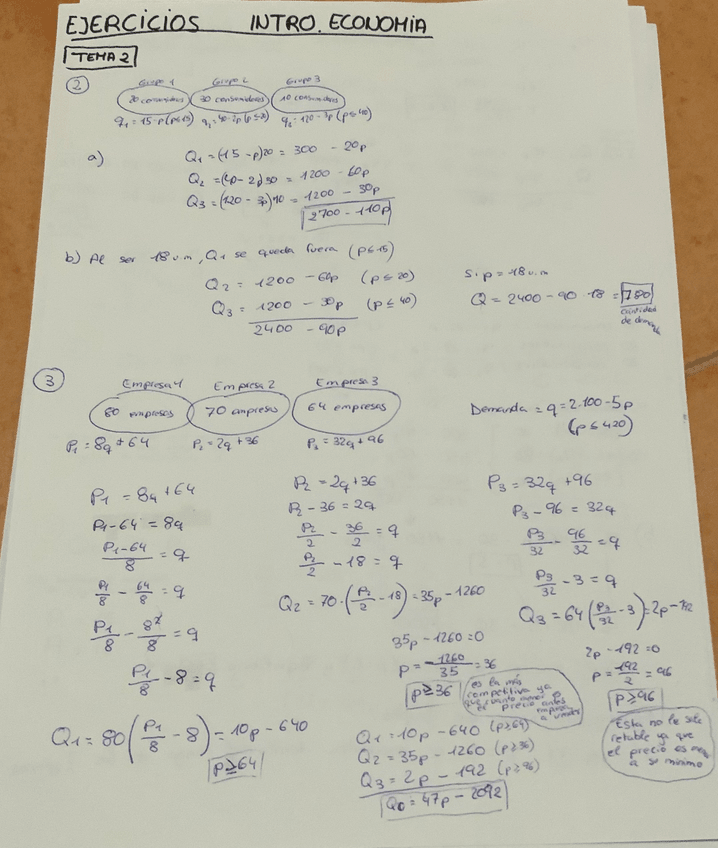 EJERCICIOS INTRO. ECONOMÍA
TEMA 2
2
Grupo 1 Grupo 2 Grupo 3
20 consumidores 30 consumidores 10 consumidores
q₁ = 15 - p (p≤15) q₂ = 40 - 2p (p≤20) q₃ = 120 - 3p (p≤40)
a) Q₁ = (15 - p)20 = 300 - 20p
Q₂ = (40 - 2p)30 = 1200 - 60p
Q₃ = (120 - 3p)10 = 1200 - 30p
2700 - 110p
b) Al ser 18 u.m, Q₁ se queda fuera (p≤15)
Q₂ = 1200 - 60p (p≤20)
Q₃ = 1200 - 30p (p≤40)
2400 - 90p
Si p = 18 u.m
Q = 2400 - 90 · 18 = 780
cantidad
de demanda
3
Empresa 1 Empresa 2 Empresa 3
80 empresas 70 empresas 64 empresas
P₁ = 8q + 64 P₂ = 2q + 36 P₃ = 32q + 96
Demanda = q = 2.100 - 5p
(p≤420)
P₁ = 8q + 64
P₁ - 64 = 8q
P₁ - 64 / 8 = q
P₁/8 - 64/8 = q
P₁/8 - 8²/8 = q
P₁/8 - 8 = q
Q₁ = 80(P₁/8 - 8) = 10p - 640
p≥64
P₂ = 2q + 36
P₂ - 36 = 2q
P₂/2 - 36/2 = q
P₂/2 - 18 = q
Q₂ = 70 · (P₂/2 - 18) = 35p - 1260
35p - 1260 = 0
p = -1260/35 = 36
p≥36
es la más
competitiva ya
que cuanto menor es
el precio antes
a vender
P₃ = 32q + 96
P₃ - 96 = 32q
P₃/32 - 96/32 = q
P₃/32 - 3 = q
Q₃ = 64(P₃/32 - 3) = 2p - 192
2p - 192 = 0
p = 192/2 = 96
p≥96
Esta no le sale
retable ya que
el precio es
a su mínimo
Q₁ = 10p - 640 (p≥64)
Q₂ = 35p - 1260 (p≥36)
Q₃ = 2p - 192 (p≥96)
Q₀ = 47p - 2092